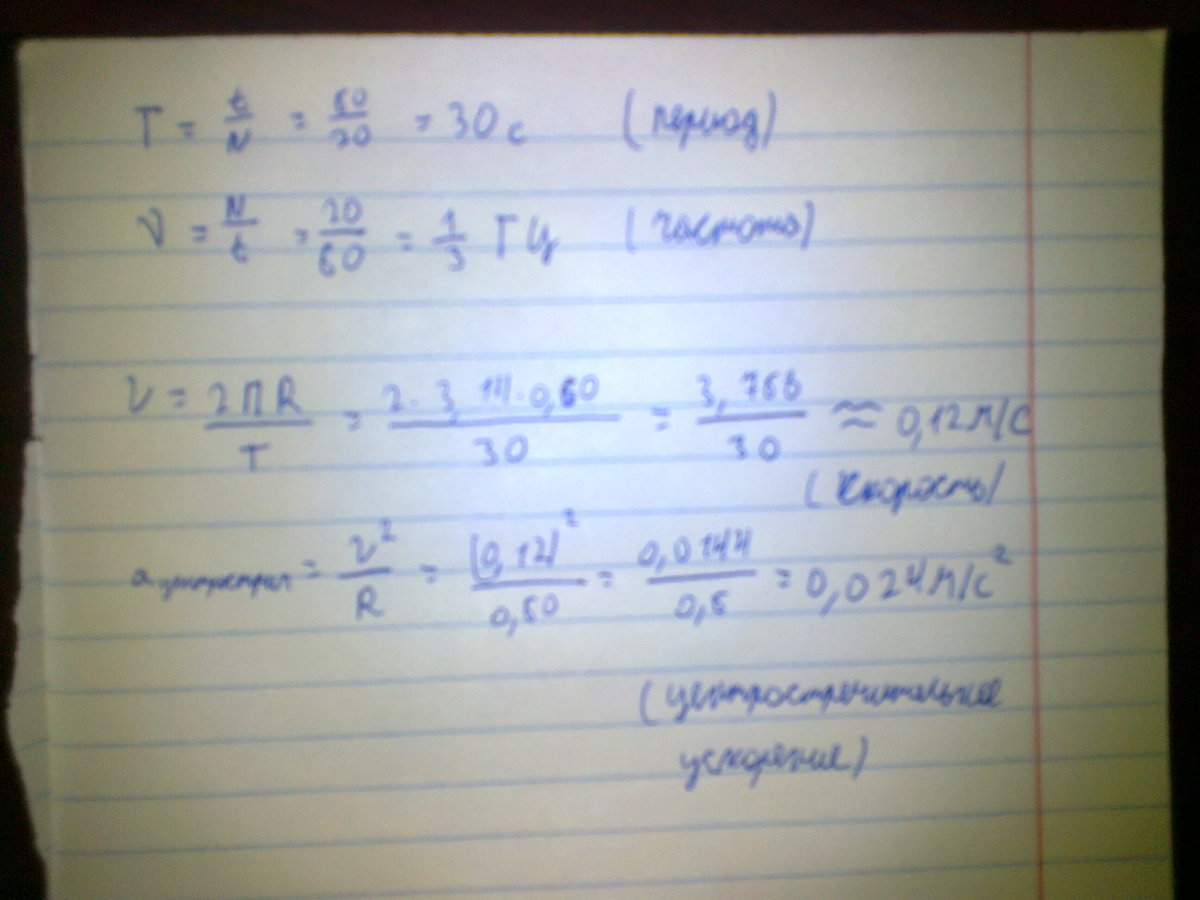 T = t/N = 60/20 = 30 с (период)
ν = N/t = 20/60 = 1/3 ГЦ (частота)
V = 2ПR/T = 2·3,14·0,60/30 = 3,768/30 ≈ 0,12 м/с
(скорость)
a центростр = v²/R = (0,12)²/0,60 = 0,0144/0,6 = 0,024 м/с²
(центростремительное
ускорение)